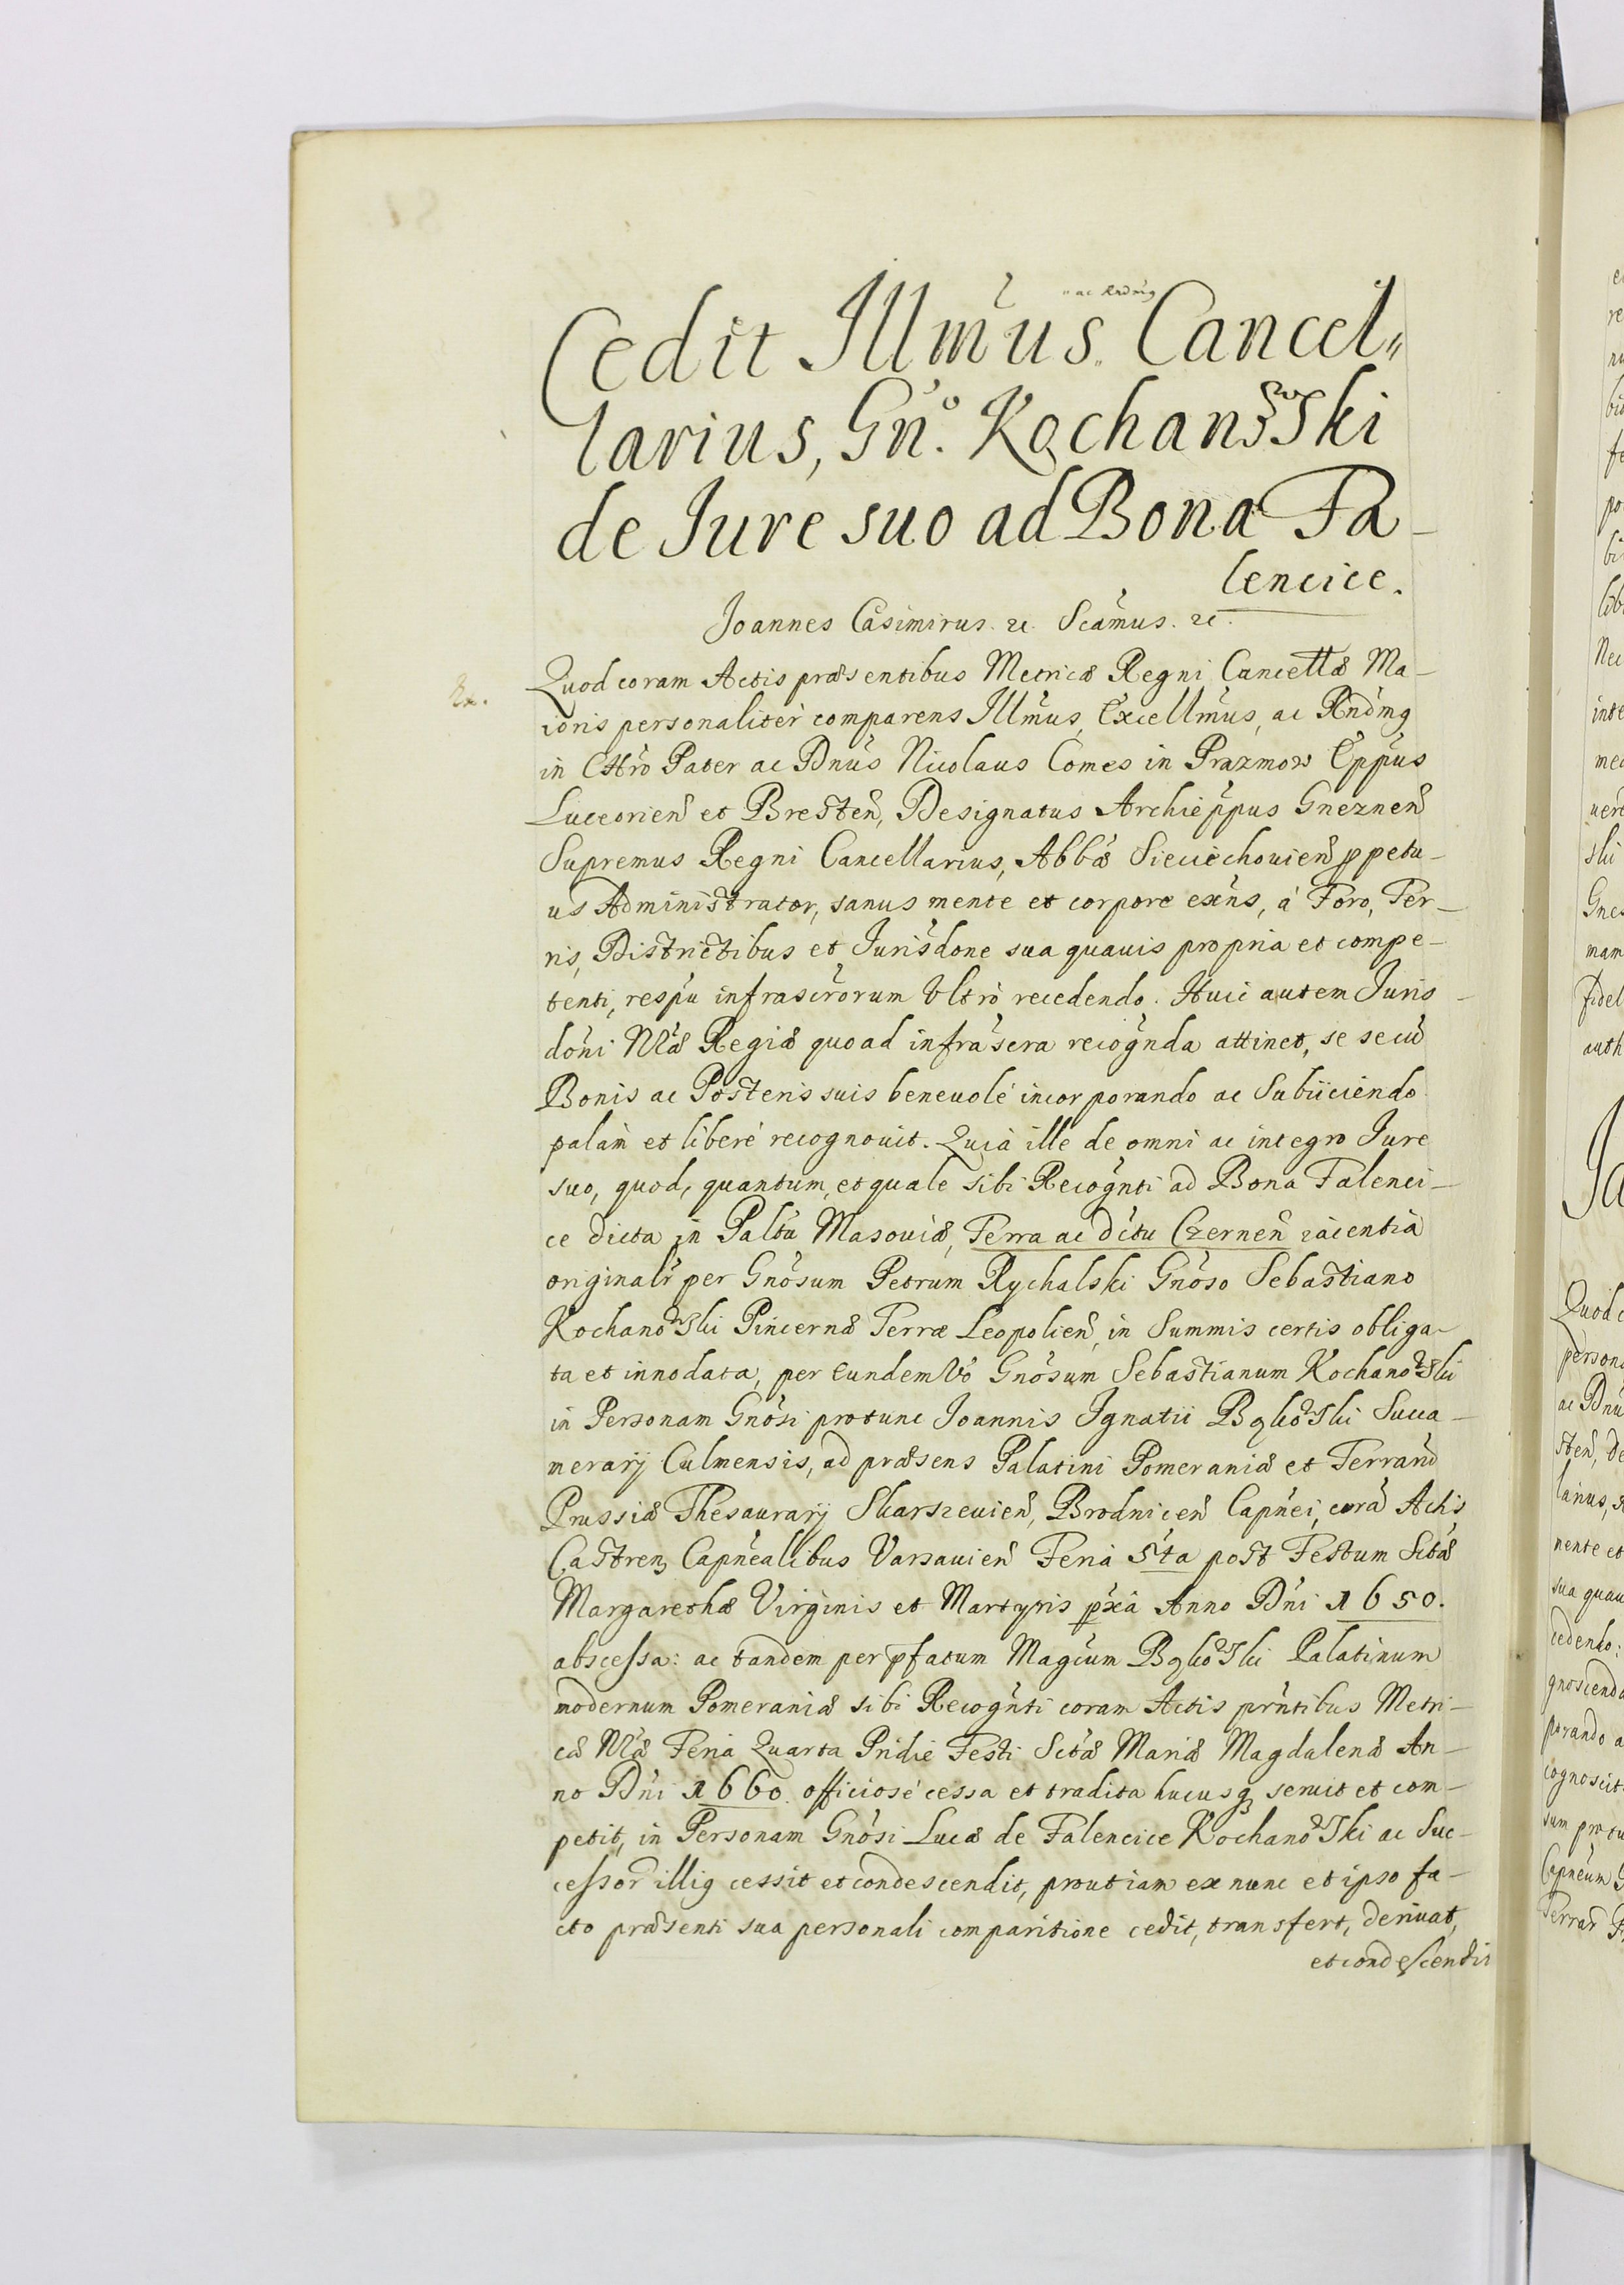 ac Rndmg
Cedit Illmus Cancel„
larius, Gn̄o. Kochanowski
de Jure suo ad Bona Fa-
lencice.
Joannes Casimirus. &c. Scamus. &c.
Quod coram Actis præsentibus Metricæ Regni Cancellæ Ma-
Rx.
ioris personaliter comparens Illmus, Excellmus, ac Rndmg
in Chro Pater ac Dnus Nicolaus Comes in Prazmow Eppus
Luceorien et Bresten, Designatus Archieppus Gneznen
Supremus Regni Cancellarius, Abbæ Sieciechouien ppetu-
us Administrator, sanus mente et corpore exns, à Foro, Ter-
ris, Districtibus et Jurisdone sua quauis propria et compe-
tenti, respu infrascrorum Ultrò recedendo. Huic autem Juris-
doni Nræ Regiæ quoad infrascra recognda attinet, se secū
Bonis ac Posteris suis beneuolè incorporando ac Subiiciendo
palam et liberè recognouit. Quia ille de omni ac integro Jure
suo, quod, quantum, et quale sibi Recognti ad Bona Falenci-
ce dicta in Paltu Masouiæ, Terra ac dctu Czernen iacentia
originalr per Gnosum Petrum Rychalski Gnoso Sebastiano
Kochanowski Pincernæ Terræ Leopolien, in Summis certis obliga-
ta et innodata, per Eundem Vo Gnosum Sebastianum Kochanowski
in Personam Gnosi protunc Joannis Ignatii Bąkowski Succa-
merarij Culmensis, ad præsens Palatini Pomeraniæ et Terrarū
Prussiæ Thesaurarij Skarszeuien, Brodnicen Capnei, corā Actis
Castren Capnealibus Varsauien Feria 5ta post Festum Sctæ
Margarethæ Virginis et Martyris pxia Anno Dni 1650.
abscessa: ac tandem per pfatum Magcum Bąkowski Palatinum
modernum Pomeraniæ sibi Recognti coram Actis prntibus Metri-
cæ Nræ Feria Quarta Pridie Festi Sctæ Mariæ Magdalenæ An-
no Dni 1660. officiosè cessa et tradita hucusq seruit et com-
petit, in Personam Gnosi Lucæ de Falencice Kochanowski ac Suc-
cessor illig cessit et condescendit, prout iam ex nunc et ipso fa-
cto præsenti sua personali comparitione cedit, transfert, deriuat,
et condescendit